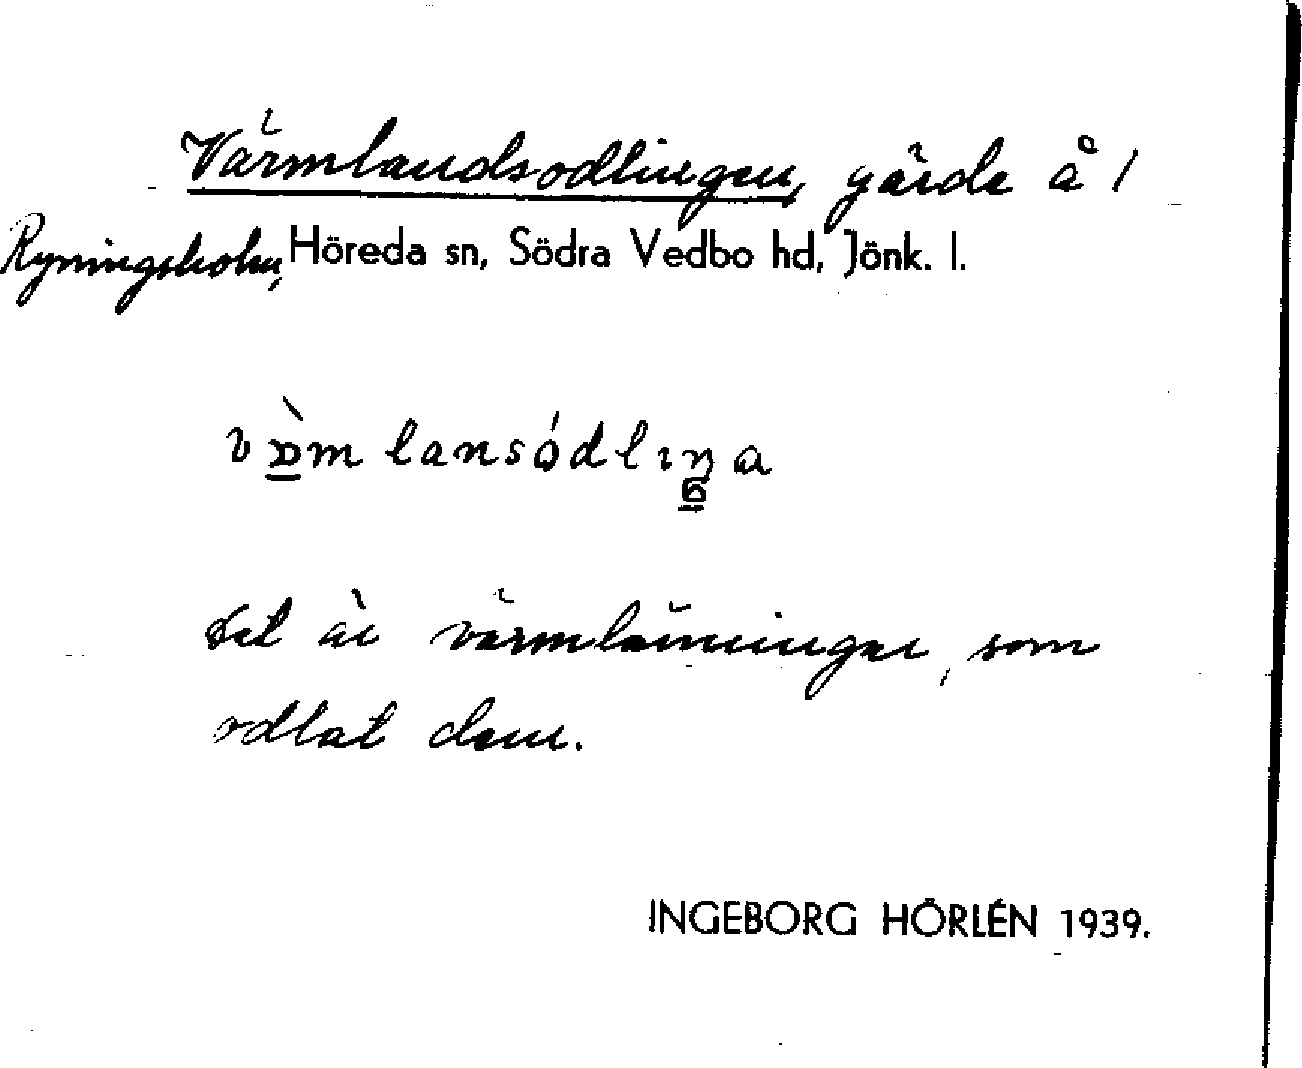 Värmlandsodlingen, gärde å 1
Ryningsholm, Höreda sn, Södra Vedbo hd, Jönk. l.
Det är värmlänningar, som
odlat dem.
INGEBORG HÖRLÉN 1939.